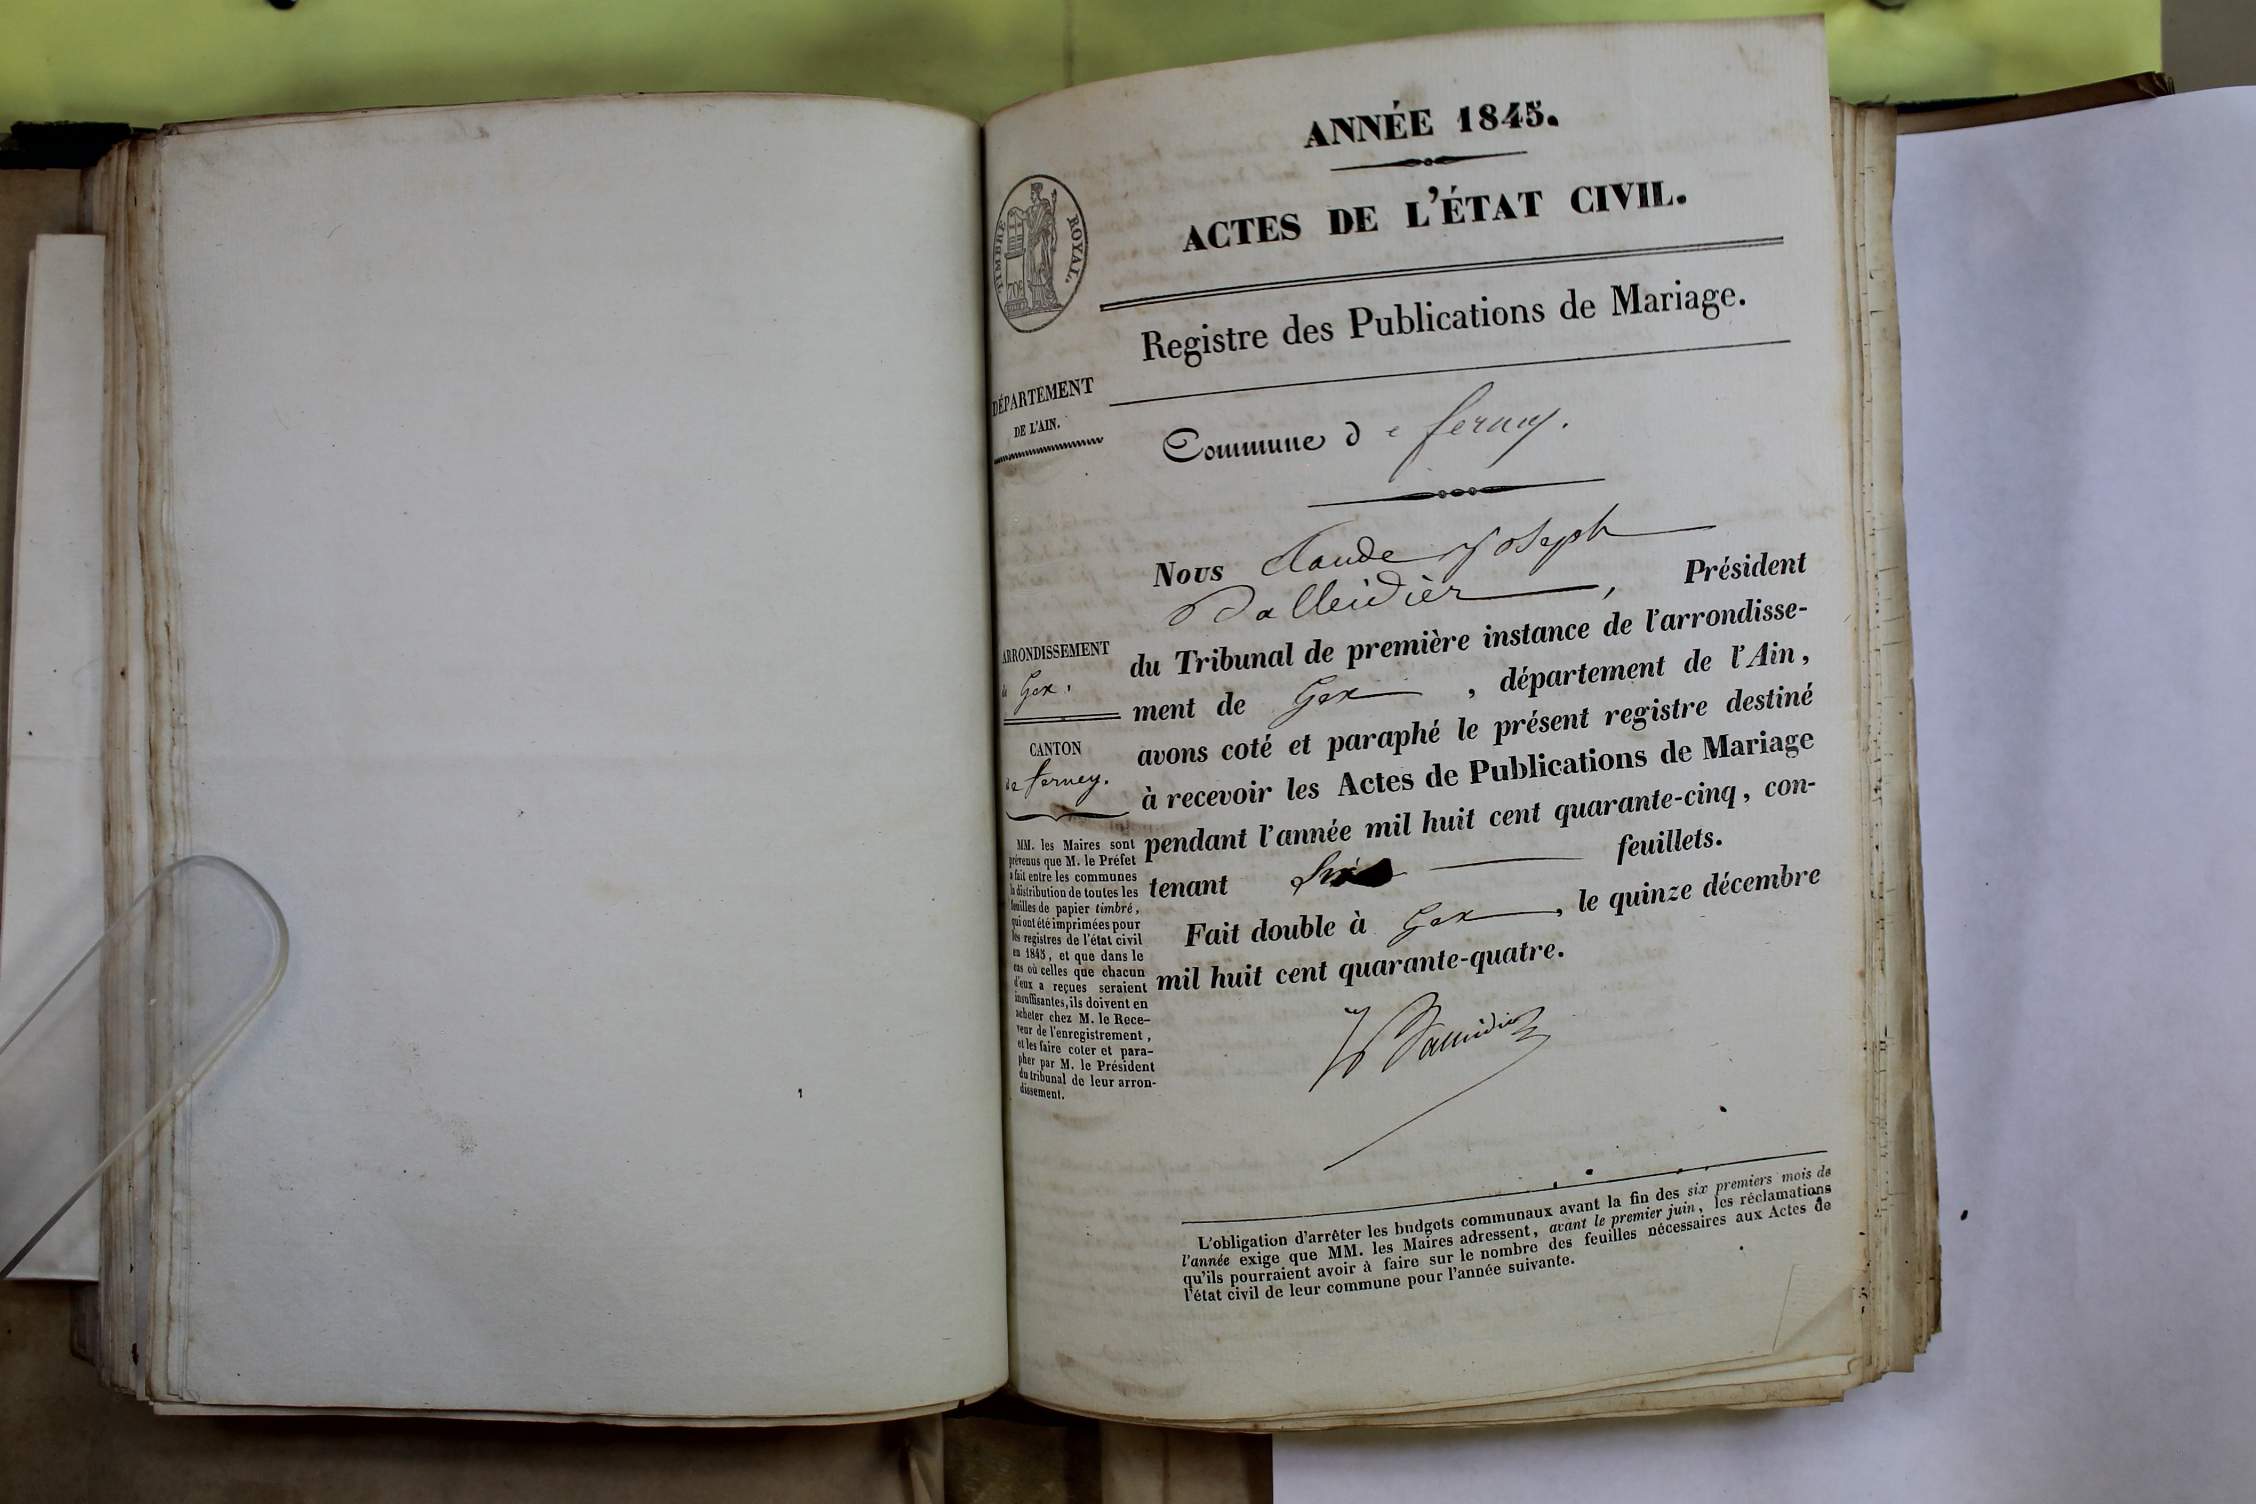 ANNÉE 1845.
ACTES DE L'ÉTAT CIVIL.
TIMBRE ROYAL.
70c
Registre des Publications de Mariage.
DÉPARTEMENT
DE L'AIN.
Commune de ferney.
Nous Claude Joseph
Balleidier, Président
du Tribunal de première instance de l'arrondisse-
ment de Gex, département de l'Ain,
avons coté et paraphé le présent registre destiné
à recevoir les Actes de Publications de Mariage
pendant l'année mil huit cent quarante-cinq, con-
tenant feuillets.
Fait double à Gex, le quinze décembre
mil huit cent quarante-quatre.
ARRONDISSEMENT
de Gex.
CANTON
de ferney.
MM. les Maires sont
prévenus que M. le Préfet
a fait entre les communes
la distribution de toutes les
feuilles de papier timbré,
qui ont été imprimées pour
les registres de l'état civil
en 1845, et que dans le
cas où celles que chacun
d'eux a reçues seraient
insuffisantes, ils doivent en
acheter chez M. le Rece-
veur de l'enregistrement,
et les faire coter et para-
pher par M. le Président
du tribunal de leur arron-
dissement.
L'obligation d'arrêter les budgets communaux avant la fin des six premiers mois de
l'année exige que MM. les Maires adressent, avant le premier juin, les réclamations
qu'ils pourraient avoir à faire sur le nombre des feuilles nécessaires aux Actes de
l'état civil de leur commune pour l'année suivante.